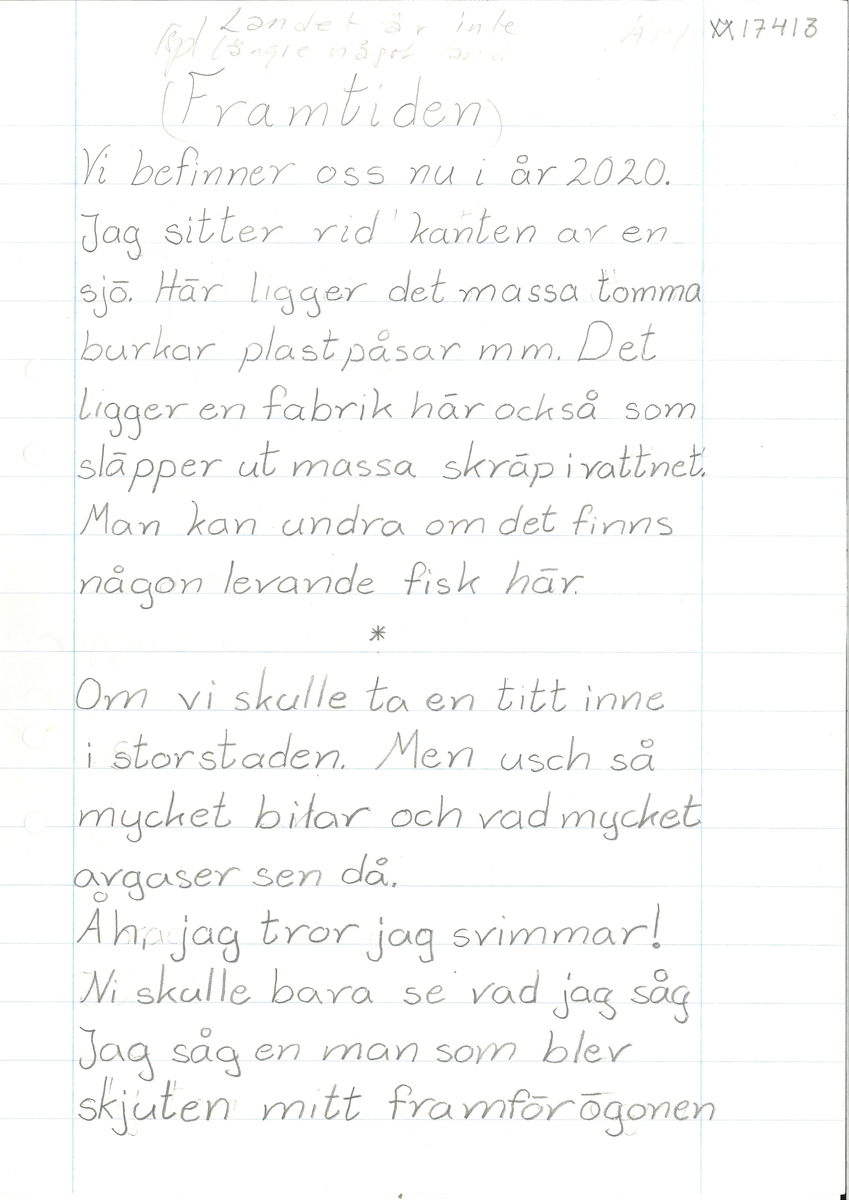 Landet är inte
XX17413
längre något land
(Framtiden)
Vi befinner oss nu i år 2020.
Jag sitter vid kanten av en
sjö. Här ligger det massa tomma
burkar plastpåsar mm. Det
ligger en fabrik här också som
släpper ut massa skräp i vattnet.
Man kan undra om det finns
någon levande fisk här.
*
Om vi skulle ta en titt inne
i storstaden. Men usch så
mycket bilar och vad mycket
avgaser sen då.
Åh jag tror jag svimmar!
Ni skulle bara se vad jag såg
Jag såg en man som blev
skjuten mitt framför ögonen